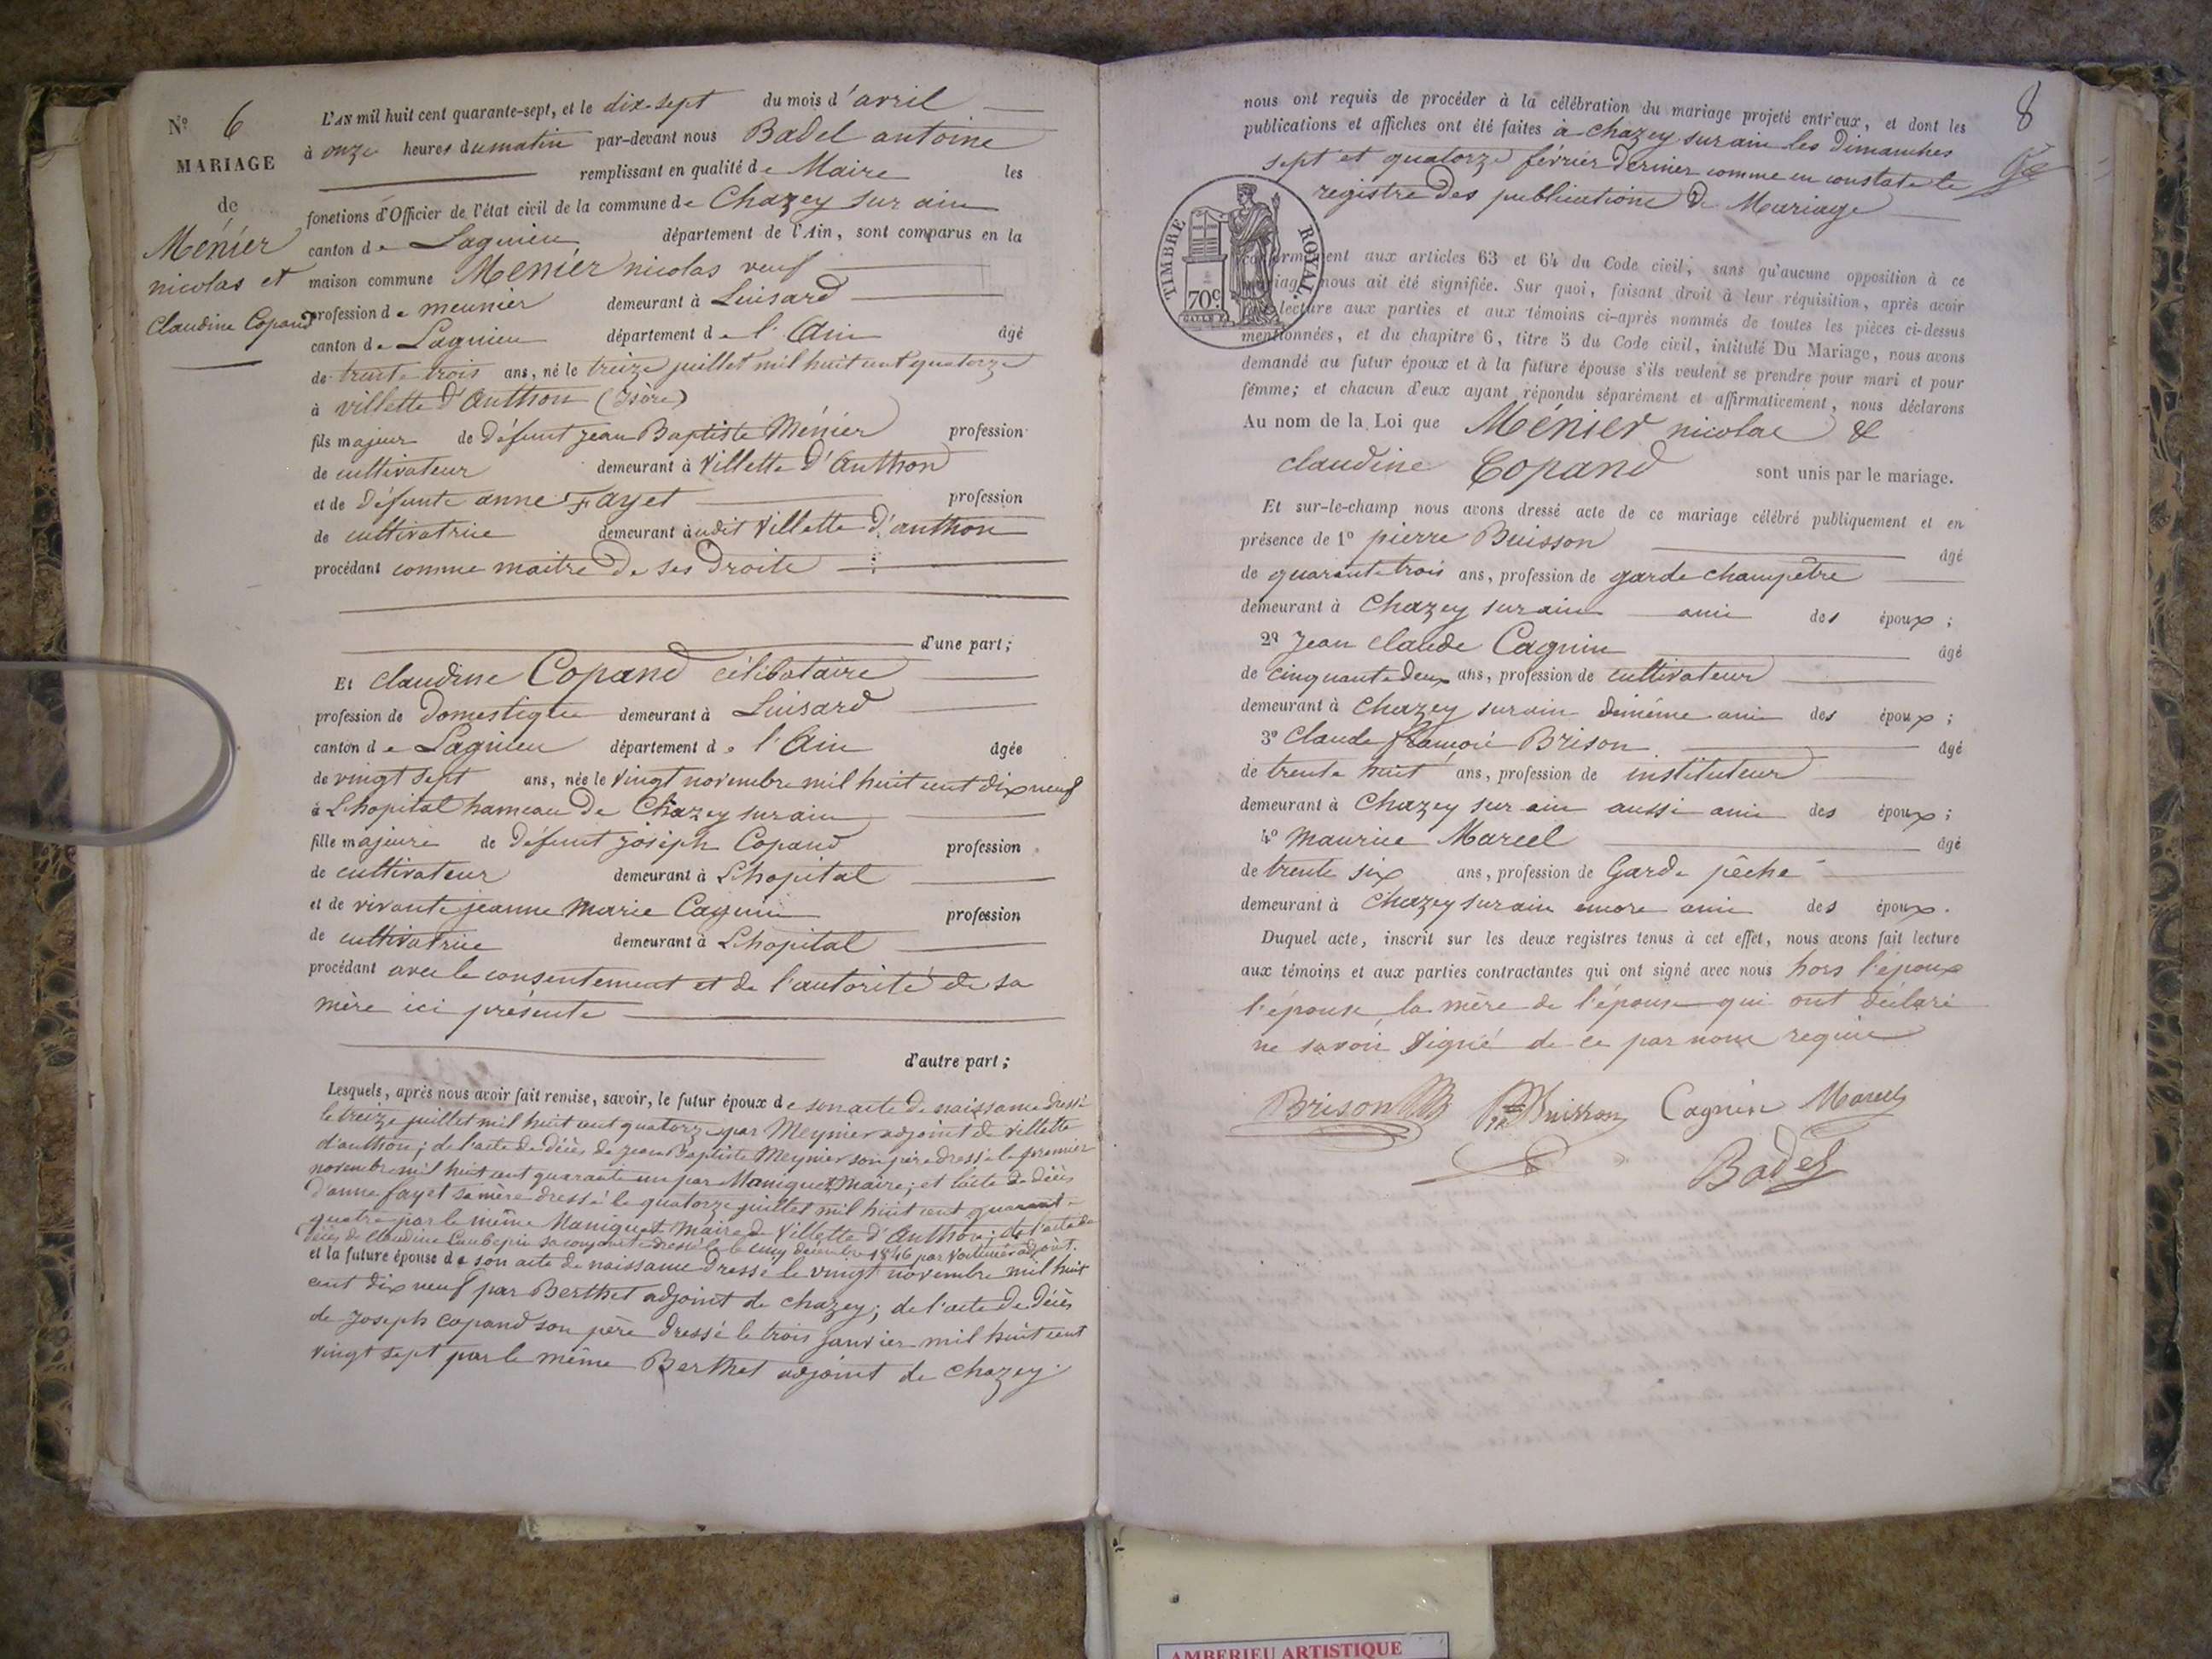 N° 6
MARIAGE
de
Ménier
nicolas et
Claudine Copand
L'AN mil huit cent quarante-sept, et le dix-sept du mois d'avril
à onze heures du matin par-devant nous Badel antoine
remplissant en qualité de Maire les
fonctions d'Officier de l'état civil de la commune de Chazey sur ain
canton de Lagnieu département de l'Ain, sont comparus en la
maison commune Menier nicolas veuf
profession de meunier demeurant à Luisard
canton de Lagnieu département de l'Ain âgé
de trente trois ans, né le treize juillet mil huit cent quatorze
à villette d'Anthon (Isère)
fils majeur de défunt jean Baptiste Ménier profession
de cultivateur demeurant à Villette d'Anthon
et de défunte anne Fayet profession
de cultivatrice demeurant àudit Villette d'anthon
procédant comme maitre de ses droits
d'une part;
Et claudine Copand célibataire
profession de domestique demeurant à Luisard
canton de Lagnieu département de l'Ain âgée
de vingt sept ans, née le vingt novembre mil huit cent dix neuf
à Lhopital hameau de Chazey sur ain
fille majeure de défunt joseph Copand profession
de cultivateur demeurant à Lhopital
et de vivante jeanne Marie Cagnin profession
de cultivatrice demeurant à Lhopital
procédant avec le consentement et de l'autorité de sa
mère ici présente
d'autre part;
Lesquels, après nous avoir fait remise, savoir, le futur époux de son acte de naissance dressé
le treize juillet mil huit cent quatorze par Meynier adjoint de villette
d'anthon; de l'acte de décès de jean Baptiste Meynier son père dressé le premier
novembre mil huit cent quarante un par Maniquet, Maire; et l'acte de décès
d'anne fayet sa mère dressé le quatorze juillet mil huit cent quarante
quatre par le même Maniquet Maire de Villette d'Anthon; de l'acte de
décès de Claudine sa conjointe dressé le cinq décembre 1846 par adjoint.
et la future épouse de son acte de naissance dressé le vingt novembre mil huit
cent dix neuf par Berthet adjoint de chazey; de l'acte de décès
de Joseph Copand son père dressé le trois janvier mil huit cent
vingt sept par le même Berthet adjoint de chazey.
8
nous ont requis de procéder à la célébration du mariage projeté entr'eux, et dont les
publications et affiches ont été faites à chazey sur ain les dimanches
sept et quatorze février dernier comme en constate le
registre des publications de Mariage
TIMBRE ROYAL.
70c
conformément aux articles 63 et 64 du Code civil, sans qu'aucune opposition à ce
mariage nous ait été signifiée. Sur quoi, faisant droit à leur réquisition, après avoir
lecture aux parties et aux témoins ci-après nommés de toutes les pièces ci-dessus
mentionnées, et du chapitre 6, titre 5 du Code civil, intitulé Du Mariage, nous avons
demandé au futur époux et à la future épouse s'ils veulent se prendre pour mari et pour
femme; et chacun d'eux ayant répondu séparément et affirmativement, nous déclarons
Au nom de la Loi que Ménier nicolas &
claudine Copand sont unis par le mariage.
Et sur-le-champ nous avons dressé acte de ce mariage célébré publiquement et en
présence de 1° pierre Buisson âgé
de quarante trois ans, profession de garde champêtre
demeurant à Chazey sur ain ami des époux;
2° Jean claude Cagnin âgé
de cinquante deux ans, profession de cultivateur
demeurant à Chazey sur ain demême ami des époux;
3° Claude françois Brison âgé
de trente huit ans, profession de instituteur
demeurant à Chazey sur ain aussi ami des époux;
4° Maurice Marcel âgé
de trente six ans, profession de Garde pêche
demeurant à Chazey sur ain encore ami des époux.
Duquel acte, inscrit sur les deux registres tenus à cet effet, nous avons fait lecture
aux témoins et aux parties contractantes qui ont signé avec nous hors l'époux
l'épouse la mère de l'épouse qui ont déclaré
ne savoir signé de ce par nous requis
Brison Buisson Cagnin Marcel
Badel
AMBERIEU ARTISTIQUE